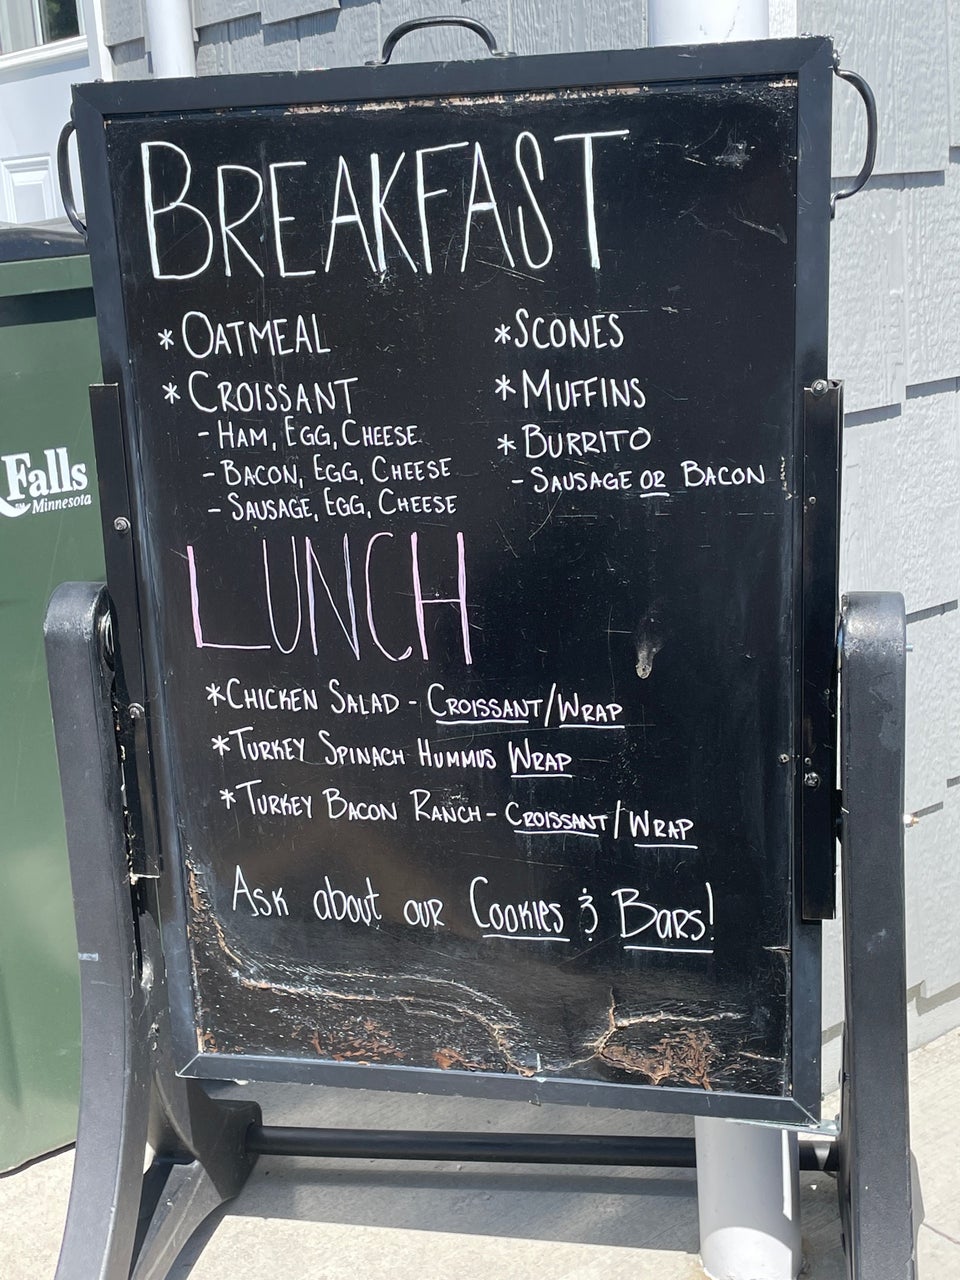 BREAKFAST
* OATMEAL
* CROISSANT
- HAM, EGG, CHEESE
- BACON, EGG, CHEESE
- SAUSAGE, EGG, CHEESE
* SCONES
* MUFFINS
* BURRITO
- SAUSAGE OR BACON
LUNCH
* CHICKEN SALAD - CROISSANT/WRAP
* TURKEY SPINACH HUMMUS WRAP
* TURKEY BACON RANCH - CROISSANT/WRAP
ASK about OUR COOKIES & BARS!
Falls
Minnesota